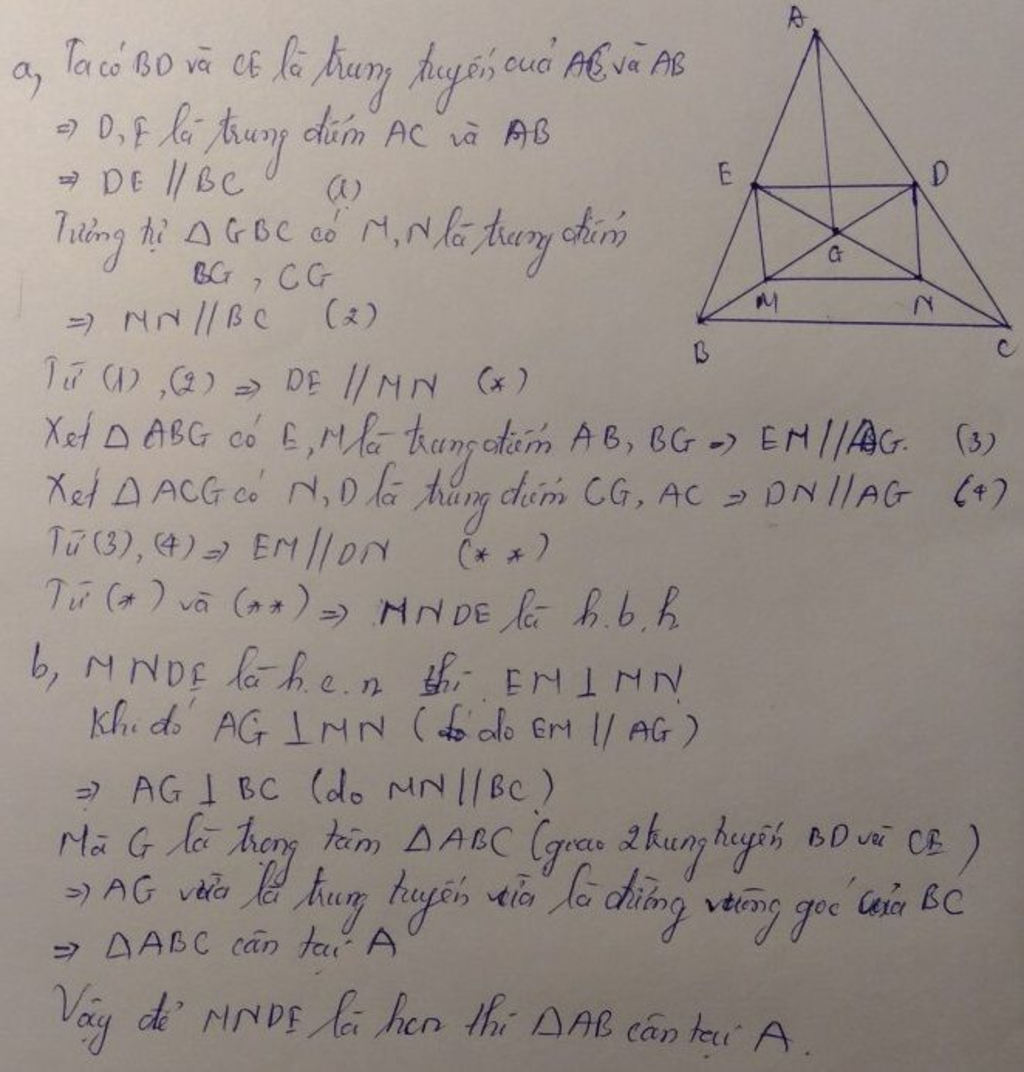 a, Ta có BD và CE là trung tuyến của AC và AB
=> D, E là trung điểm AC và AB
=> DE // BC (1)
Tương tự △GBC có M, N là trung điểm
BG, CG
=> MN // BC (2)
Từ (1), (2) => DE // MN (*)
Xét △ ABG có E, M là trung điểm AB, BG => EM // AG. (3)
Xét △ ACG có N, D là trung điểm CG, AC => DN // AG (4)
Từ (3), (4) => EM // DN (* *)
Từ (*) và (**) => MNDE là h.b.h
b, MNDE là h.c.n thì EM ⊥ MN
Khi đó AG ⊥ MN (do EM // AG)
=> AG ⊥ BC (do MN // BC)
Mà G là trọng tâm △ABC (giao 2 trung tuyến BD và CE)
=> AG vừa là trung tuyến vừa là đường vuông góc của BC
=> △ABC cân tại A
Vậy để MNDE là hcn thì △AB cân tại A.
A
E
D
G
M
N
B
C